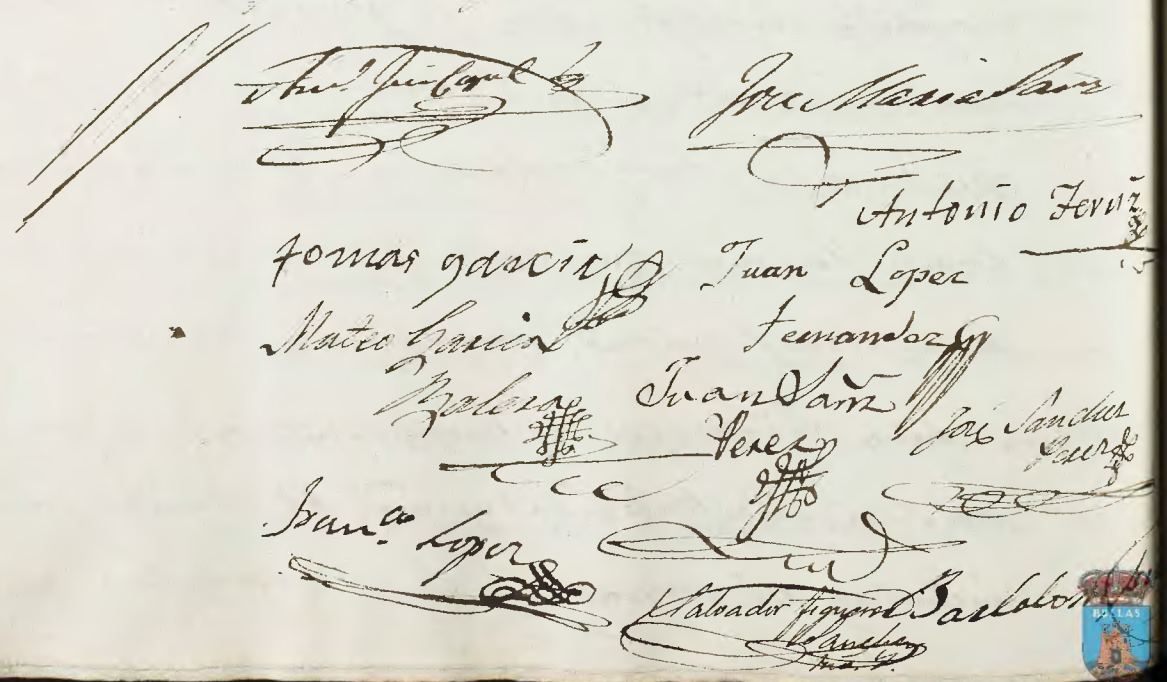 Jose Maria Sanz
Antonio Fernz
tomas garcia
Juan Lopez
Fernandez
Mateo Garcia
Valera
Juan Sanz
Perez
José Sanchez
Perez
Fran.co Lopez
Salvador figueroa
Sanchez
BULLAS